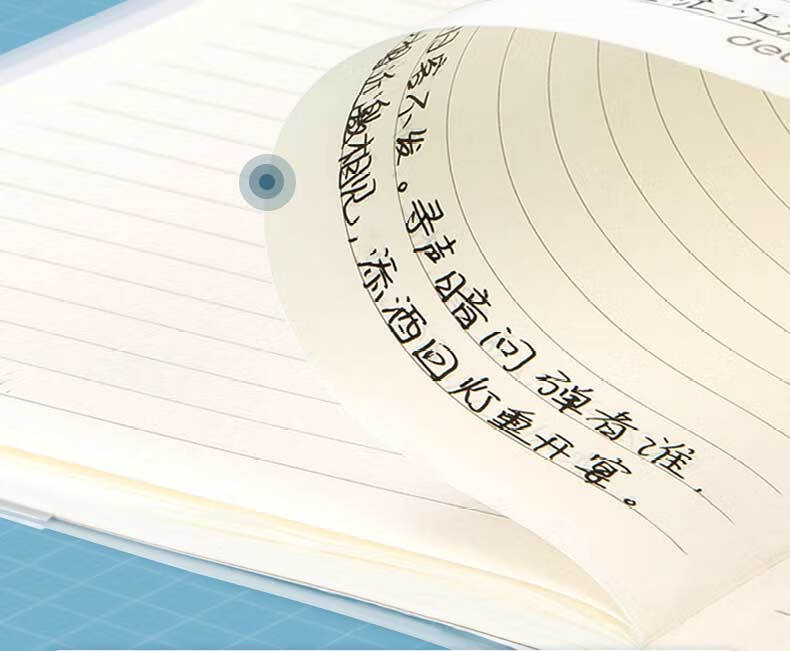 江
de
客不发。寻声暗问弹者谁,
邀相见,添酒回灯重开宴。